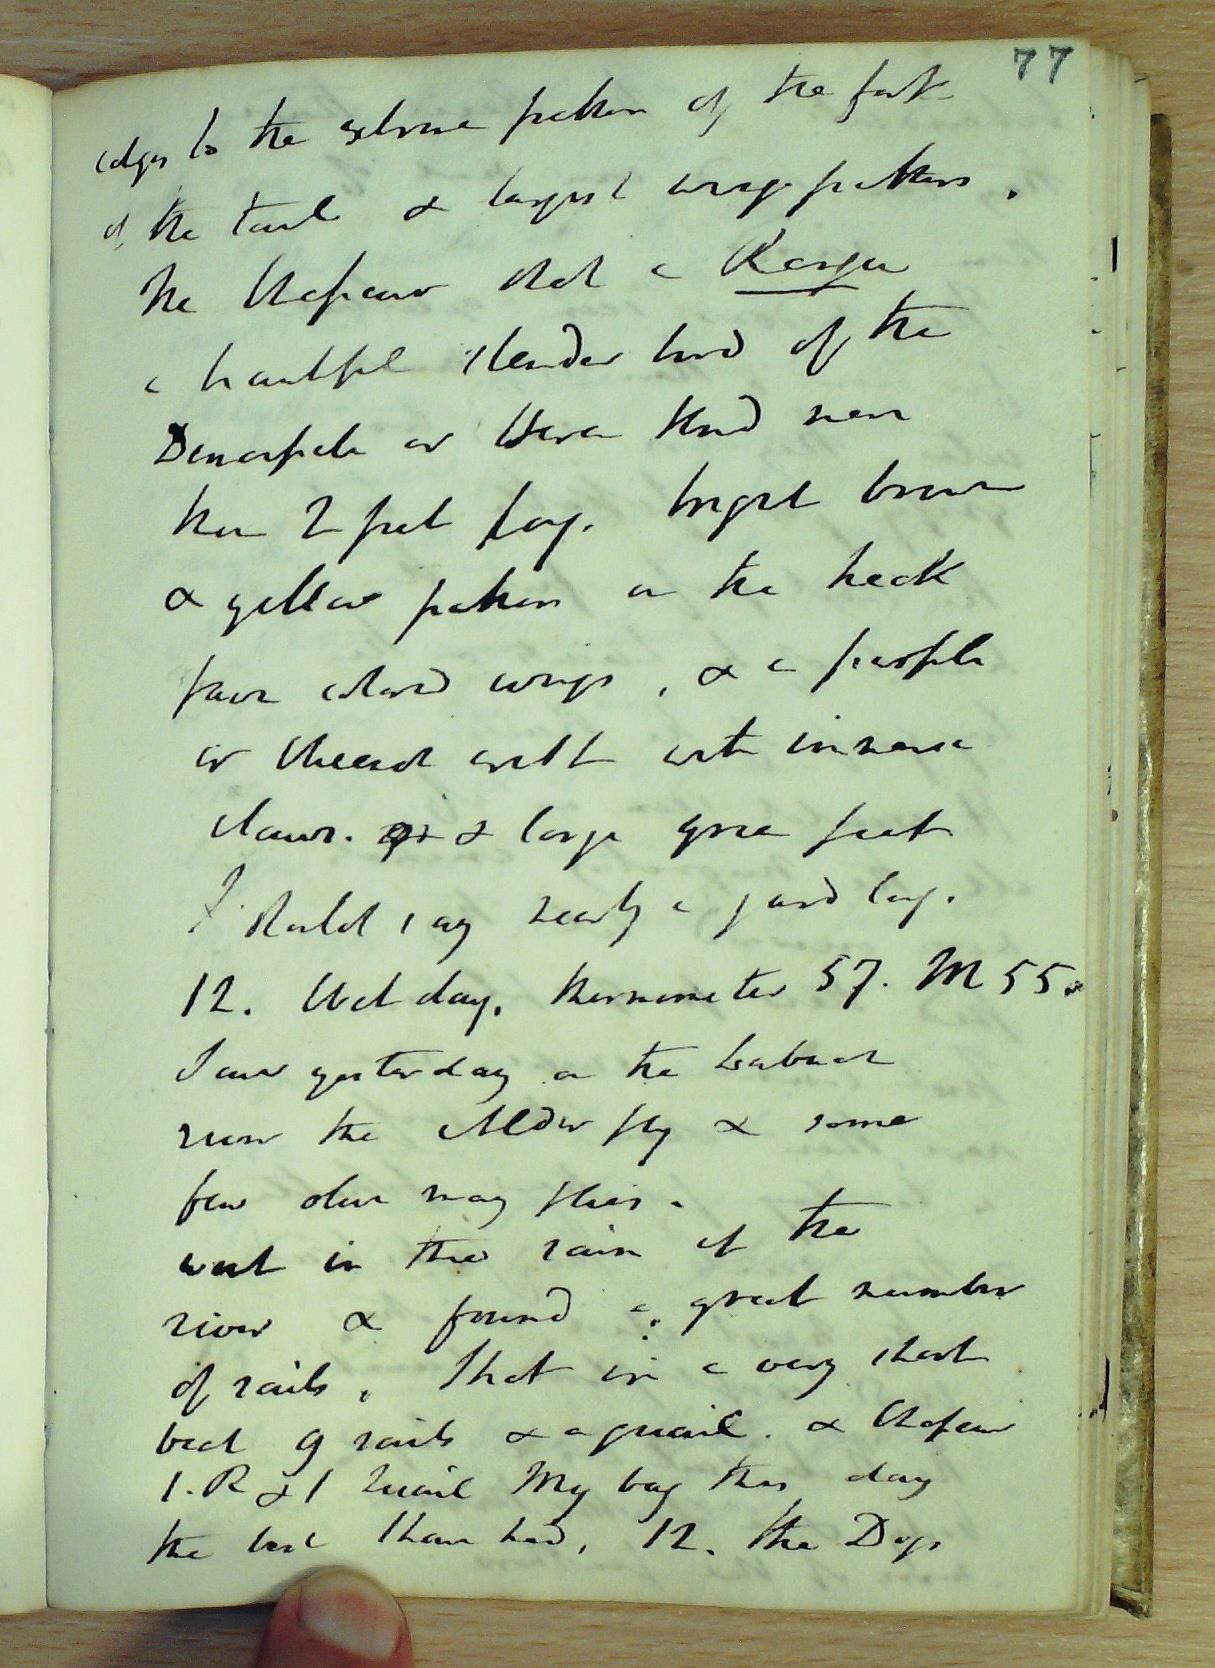 77
edges to the extreme feathers of the foot
of the tail & largest wing feathers.
The Chasseur shot a
a beautiful slender bird of the
or Heron kind more
than 2 feet long. bright brown
& yellow feathers on the neck
fawn colored wings, & a purple
or with immense
claws. & large green feet
I should say nearly a yard long.
12. Wet day. thermometer 57. M 55.
I saw yesterday on the
river the Alder fly & some
few olive may flies.
went in the rain up the
river & found a great number
of rails. Shot in a very short
beat 9 rails & a quail. & Chasseur
1. R & 1 Quail My bag this day
the best I have had, 12. The Dogs